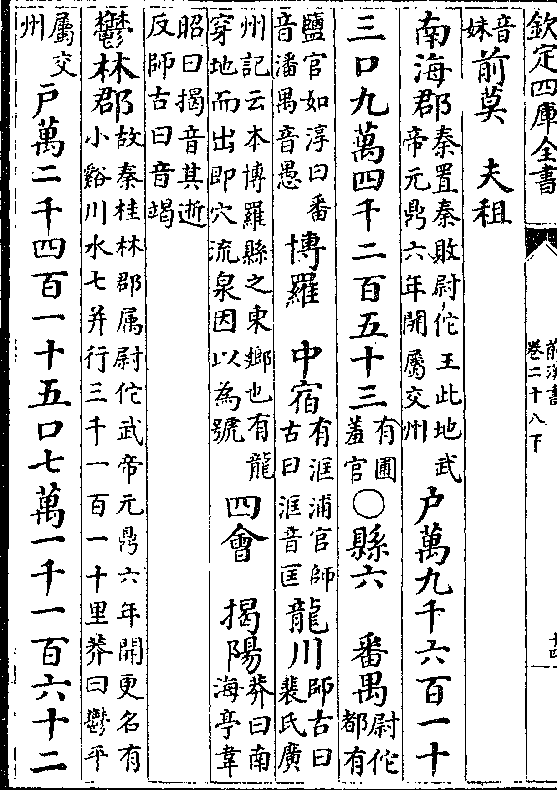 欽定四庫全書
前漢書
卷二十八下
音妹前莫　夫租
南海郡秦置秦敗尉佗王此地武帝元鼎六年開屬交州户萬九千六百一十
三口九萬四千二百五十三有圃羞官○縣六　番禺尉佗都有
鹽官如淳曰番音潘禺音愚博羅　中宿有洭浦官師古曰洭音匡龍川師古曰裴氏廣
州記云本博羅縣之東鄉也有龍穿地而出即穴流泉因以為號四會　揭陽莽曰南海亭韋
昭曰揭音其逝反師古曰音竭
鬱林郡故秦桂林郡属尉佗武帝元鼎六年開更名有小谿川水七并行三千一百一十里莽曰鬱平
屬交州户萬二千四百一十五口七萬一千一百六十二